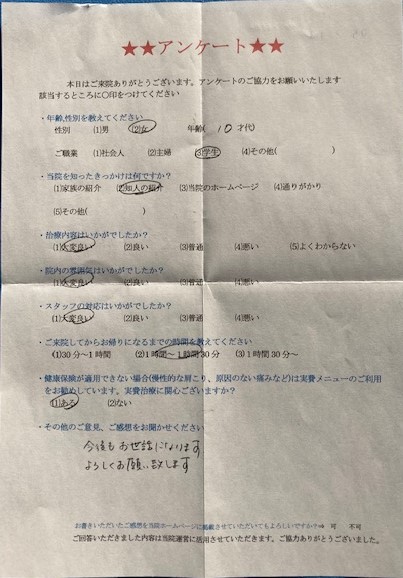 ★★アンケート★★
本日はご来院ありがとうございます。アンケートのご協力をお願いいたします
該当するところに○印をつけてください
・年齢,性別を教えてください
性別 (1)男 (2)女 年齢( 10 才代)
ご職業 (1)社会人 (2)主婦 (3)学生 (4)その他( )
・当院を知ったきっかけは何ですか?
(1)家族の紹介 (2)知人の紹介 (3)当院のホームページ (4)通りがかり
(5)その他( )
・治療内容はいかがでしたか?
(1)大変良い (2)良い (3)普通 (4)悪い (5)よくわからない
・院内の雰囲気はいかがでしたか?
(1)大変良い (2)良い (3)普通 (4)悪い
・スタッフの対応はいかがでしたか?
(1)大変良い (2)良い (3)普通 (4)悪い
・ご来院してからお帰りになるまでの時間を教えてください
(1)30分~1時間 (2)1時間~1時間30分 (3)1時間30分~
・健康保険が適用できない場合(慢性的な肩こり、原因のない痛みなど)は実費メニューのご利用
をお勧めしています。実費治療に関心ございますか?
(1)ある (2)ない
・その他のご意見、ご感想をお聞かせください
今後もお世話になります
よろしくお願い致します
お書きいただいたご感想を当院ホームページに掲載させていただいてもよろしいですか?⇒ 可 不可
ご回答いただきました内容は当院運営に活用させていただきます。ご協力ありがとうございました。